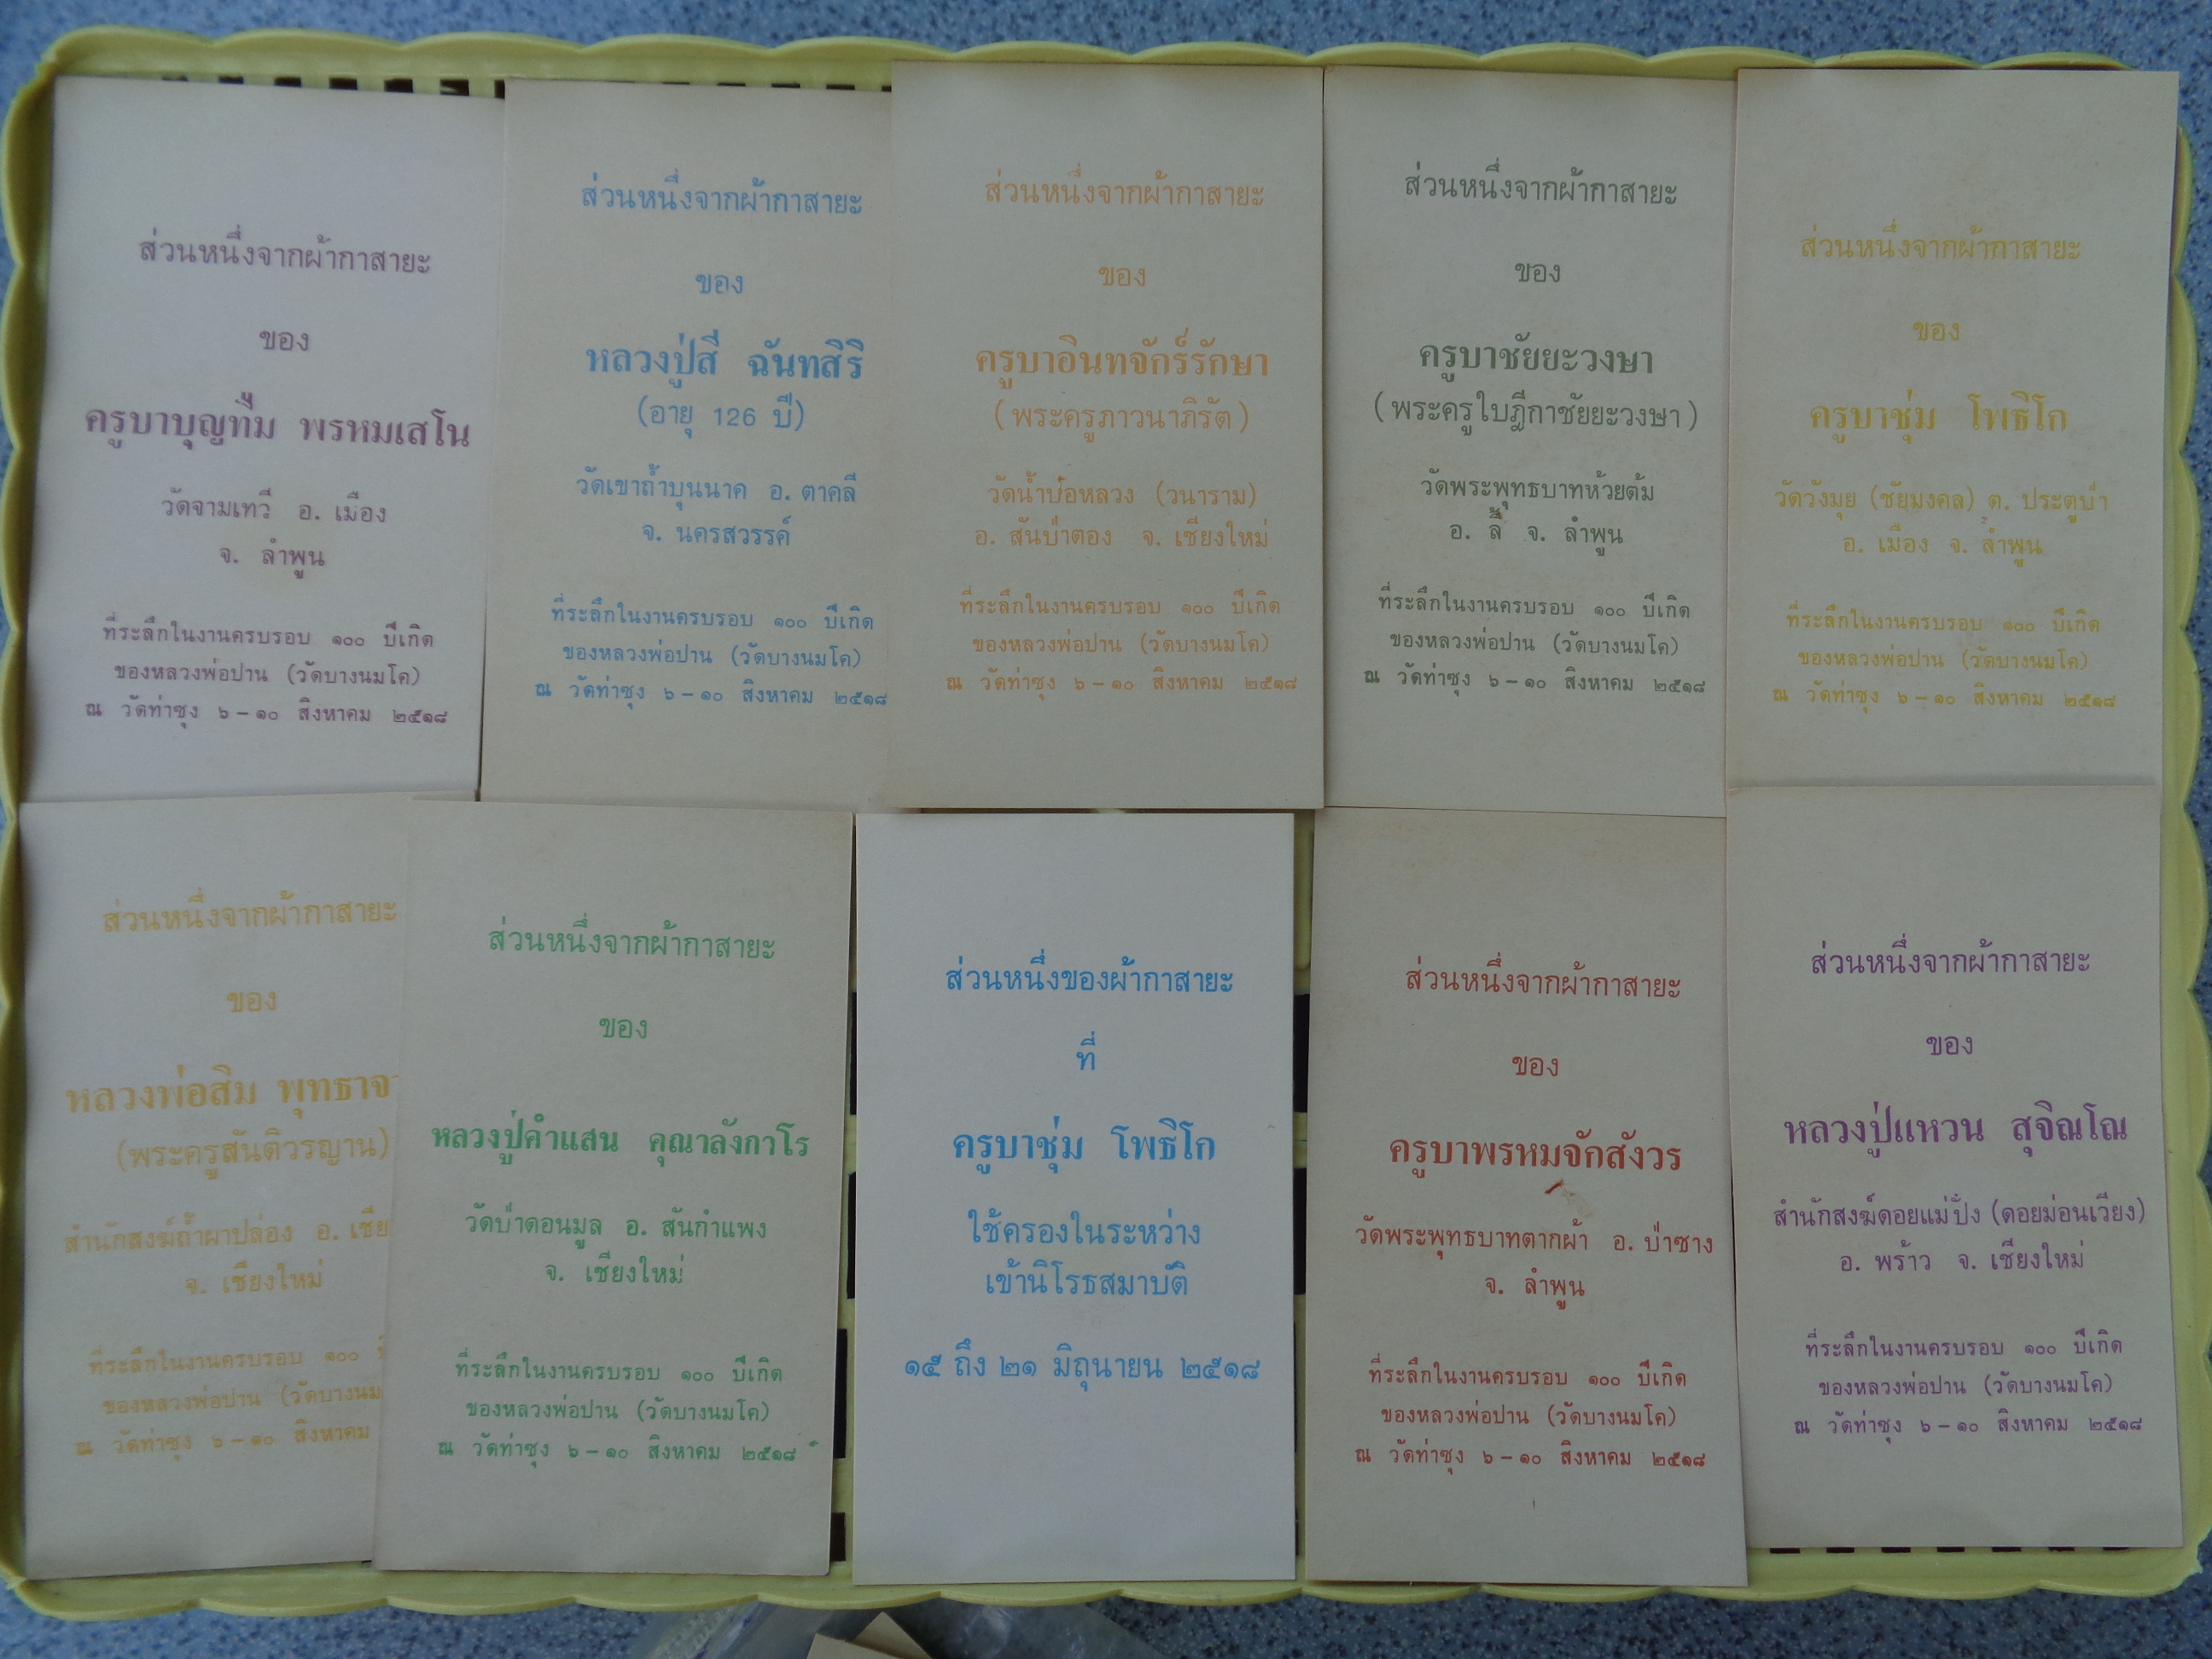 ส่วนหนึ่งจากผ้ากาสายะ
ของ
ครูบาบุญทืม พรหมเสโน
วัดจามเทวี อ. เมือง
จ. ลำพูน
ที่ระลึกในงานครบรอบ ๑๐๐ ปีเกิด
ของหลวงพ่อปาน (วัดบางนมโค)
ณ วัดท่าซุง ๖ – ๑๐ สิงหาคม ๒๕๑๘
ส่วนหนึ่งจากผ้ากาสายะ
ของ
หลวงปู่สี ฉันทสิริ
(อายุ 126 ปี)
วัดเขาถ้ำบุนนาค อ. ตาคลี
จ. นครสวรรค์
ที่ระลึกในงานครบรอบ ๑๐๐ ปีเกิด
ของหลวงพ่อปาน (วัดบางนมโค)
ณ วัดท่าซุง ๖ – ๑๐ สิงหาคม ๒๕๑๘
ส่วนหนึ่งจากผ้ากาสายะ
ของ
ครูบาอินทจักร์รักษา
(พระครูภาวนาภิรัต)
วัดน้ำบ่อหลวง (วนาราม)
อ. สันป่าตอง จ. เชียงใหม่
ที่ระลึกในงานครบรอบ ๑๐๐ ปีเกิด
ของหลวงพ่อปาน (วัดบางนมโค)
ณ วัดท่าซุง ๖ – ๑๐ สิงหาคม ๒๕๑๘
ส่วนหนึ่งจากผ้ากาสายะ
ของ
ครูบาชัยยะวงษา
(พระครูใบฎีกาชัยยะวงษา)
วัดพระพุทธบาทห้วยต้ม
อ. ลี้ จ. ลำพูน
ที่ระลึกในงานครบรอบ ๑๐๐ ปีเกิด
ของหลวงพ่อปาน (วัดบางนมโค)
ณ วัดท่าซุง ๖ – ๑๐ สิงหาคม ๒๕๑๘
ส่วนหนึ่งจากผ้ากาสายะ
ของ
ครูบาชุ่ม โพธิโก
วัดวังมุย (ชัยมงคล) ต. ประตูป่า
อ. เมือง จ. ลำพูน
ที่ระลึกในงานครบรอบ ๑๐๐ ปีเกิด
ของหลวงพ่อปาน (วัดบางนมโค)
ณ วัดท่าซุง ๖ – ๑๐ สิงหาคม ๒๕๑๘
ส่วนหนึ่งจากผ้ากาสายะ
ของ
หลวงพ่อสิม
(พระครูสันติวรญาน)
สำนักสงฆ์ถ้ำผาปล่อง อ.
จ. เชียงใหม่
ที่ระลึกในงานครบรอบ ๑๐๐
ของหลวงพ่อปาน
ณ วัดท่าซุง ๖ – ๑๐ สิงหาคม
ส่วนหนึ่งจากผ้ากาสายะ
ของ
หลวงปู่คำแสน คุณาลังกาโร
วัดป่าดอนมูล อ. สันกำแพง
จ. เชียงใหม่
ที่ระลึกในงานครบรอบ ๑๐๐ ปีเกิด
ของหลวงพ่อปาน (วัดบางนมโค)
ณ วัดท่าซุง ๖ – ๑๐ สิงหาคม ๒๕๑๘
ส่วนหนึ่งของผ้ากาสายะ
ที่
ครูบาชุ่ม โพธิโก
ใช้ครองในระหว่าง
เข้านิโรธสมาบัติ
๑๕ ถึง ๒๑ มิถุนายน ๒๕๑๘
ส่วนหนึ่งจากผ้ากาสายะ
ของ
ครูบาพรหมจักสังวร
วัดพระพุทธบาทตากผ้า อ. ป่าซาง
จ. ลำพูน
ที่ระลึกในงานครบรอบ ๑๐๐ ปีเกิด
ของหลวงพ่อปาน (วัดบางนมโค)
ณ วัดท่าซุง ๖ – ๑๐ สิงหาคม ๒๕๑๘
ส่วนหนึ่งจากผ้ากาสายะ
ของ
หลวงปู่แหวน สุจิณโณ
สำนักสงฆ์ดอยแม่ปั๋ง (ดอยม่อนเวียง)
อ. พร้าว จ. เชียงใหม่
ที่ระลึกในงานครบรอบ ๑๐๐ ปีเกิด
ของหลวงพ่อปาน (วัดบางนมโค)
ณ วัดท่าซุง ๖ – ๑๐ สิงหาคม ๒๕๑๘